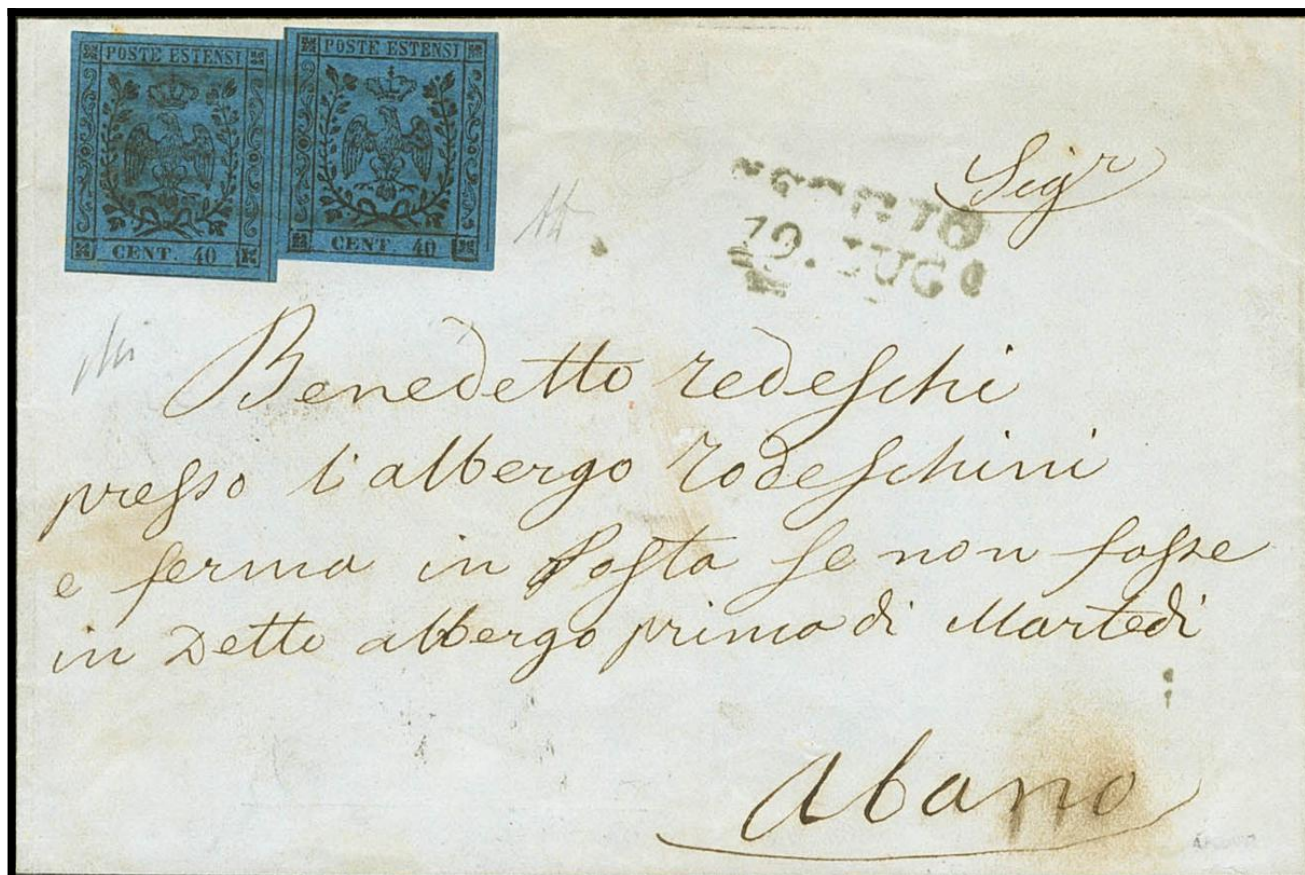 POSTE ESTENSI
CENT. 40
POSTE ESTENSI
CENT. 40
19. LUG
Sigr
Benedetto Tedeschi
presso l'albergo Todeschini
e ferma in Posta se non fosse
in Detto albergo prima di Martedi
Abano